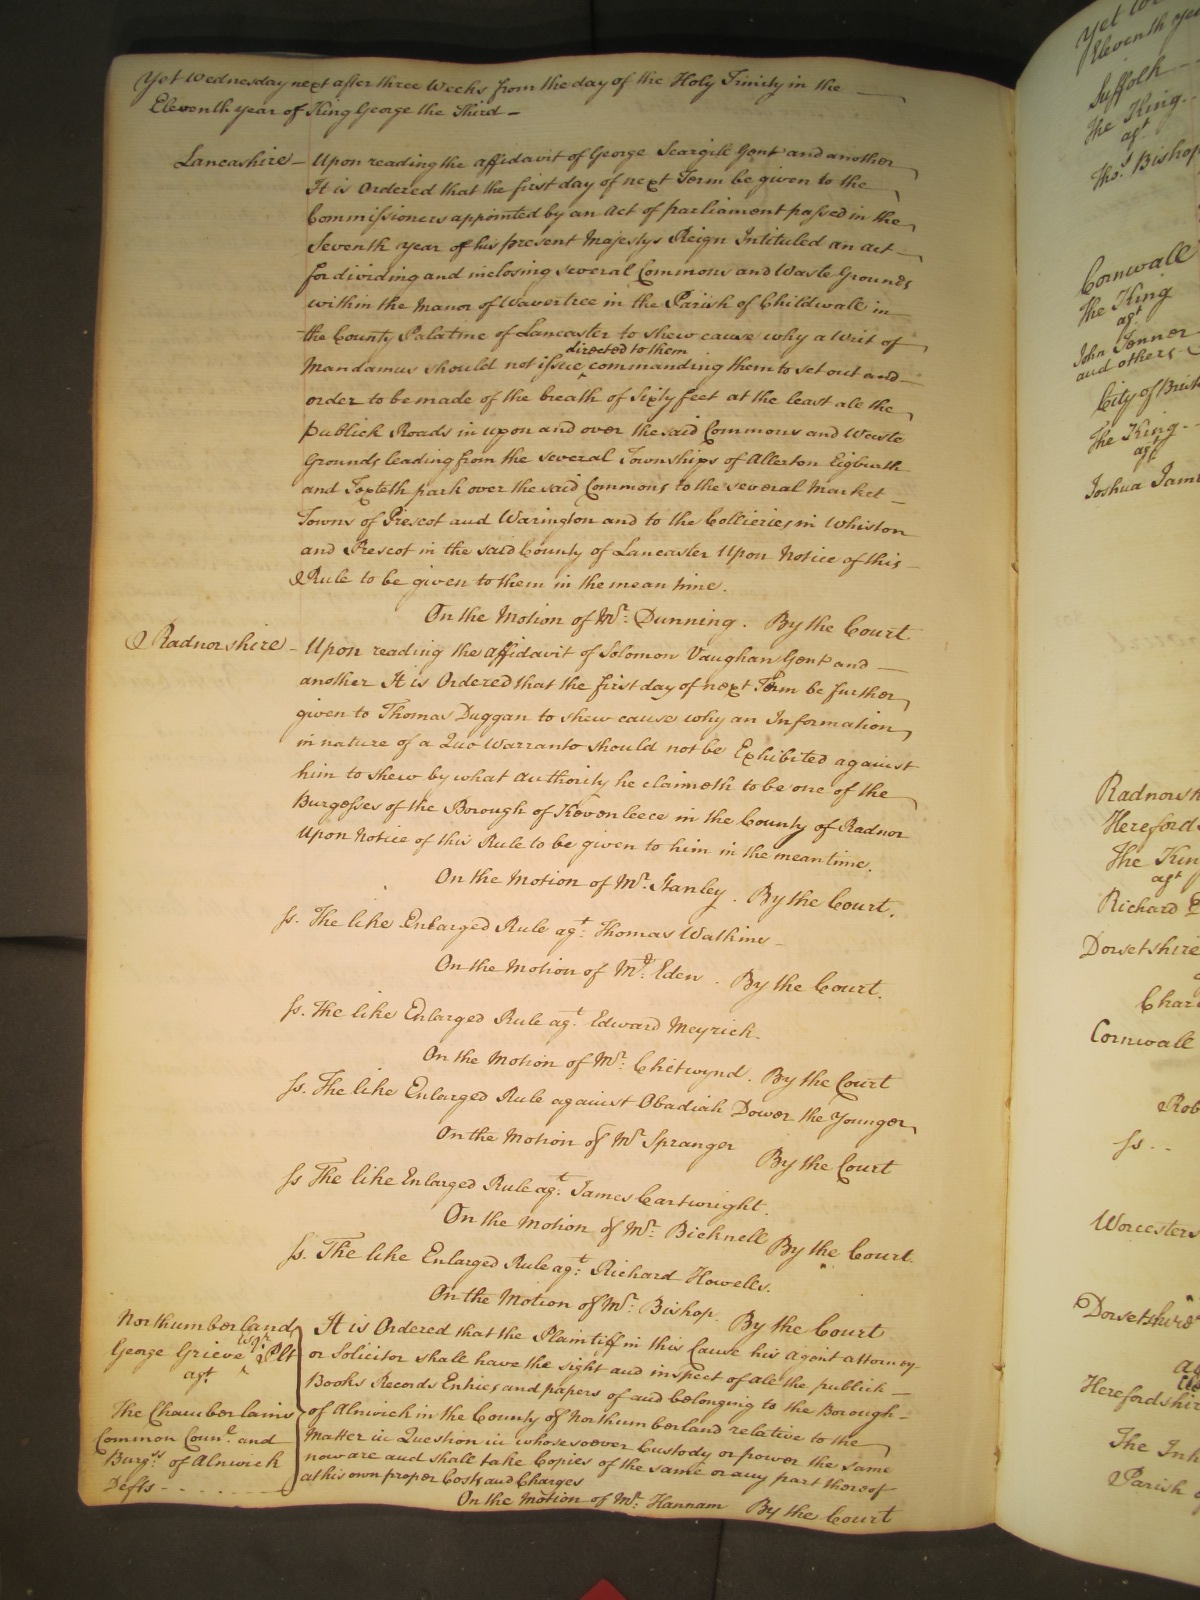 Yet Wednesday next after three Weeks from the day of the Holy Trinity in the
Eleventh year of King George the Third -
Lancashire - Upon reading the affidavit of George Scargill Gent and another
It is Ordered that the first day of next Term be given to the
Commissioners appointed by an Act of parliament passed in the
Seventh year of his present Majestys Reign Intituled an act
for dividing and inclosing several Commons and Waste Grounds
within the Manor of Wavertree in the Parish of Childwall in
the County Palatine of Lancaster to shew cause why a Writ of
directed to them
Mandamus should not issue ‸ commanding them to set out and
order to be made of the breath of Sixty feet at the least all the
publick Roads in upon and over the said Commons and Waste
Grounds leading from the several Townships of Allerton Eigburth
and Toxteth park over the said Commons to the several Market
Towns of Prescot and Warington and to the Collieries in Whiston
and Prescot in the said County of Lancaster Upon Notice of this
Rule to be given to them in the mean time.
On the Motion of Mr. Dunning. By the Court
Radnorshire - Upon reading the affidavit of Solomon Vaughan Gent and
another It is Ordered that the first day of next Term be further
given to Thomas Duggan to shew cause why an Information
in nature of a Quo Warranto should not be Exhibited against
him to shew by what authority he claimeth to be one of the
Burgesses of the Borough of Kevenleece in the County of Radnor
Upon Notice of this Rule to be given to him in the mean time.
On the Motion of Mr. Stanley. By the Court.
Ss. The like Enlarged Rule agt. Thomas Watkins -
On the Motion of Mr. Eden. By the Court.
Ss. The like Enlarged Rule agt. Edward Meyrick.
On the Motion of Mr. Chetwynd. By the Court
Ss. The like Enlarged Rule against Obadiah Dower the Younger
On the Motion of Mr Spranger By the Court
Ss The like Enlarged Rule agt. James Cartwright.
On the Motion of Mr. Bicknell By the Court.
Ss. The like Enlarged Rule agt. Richard Howells.
On the Motion of Mr. Bishop. By the Court
Northumberland
Esqr.
George Grieve ‸ Plt
agt.
The Chamberlains
Common Counl. and
Burgss. of Alnwick
Defts - - - - -
It is Ordered that the Plaintiff in this Cause his Agent attorney
or Solicitor shall have the sight and inspect of all the publick
Books Records Entries and papers of and belonging to the Borough
of Alnwick in the County of Northumberland relative to the
Matter in Question in whosesoever Custody or power the same
now are and shall take Copies of the same or any part thereof
at his own proper Costs and Charges
On the Motion of Mr. Hannam By the Court
Eleventh
Suffolk
The King
agt.
Thos. Bishop
Cornwall
The King
agt.
John Tenner
and others
City of
The King
agt.
Joshua
The
agt
Richard
Dorsetshire
Cornwall
Ss. -
The
Parish